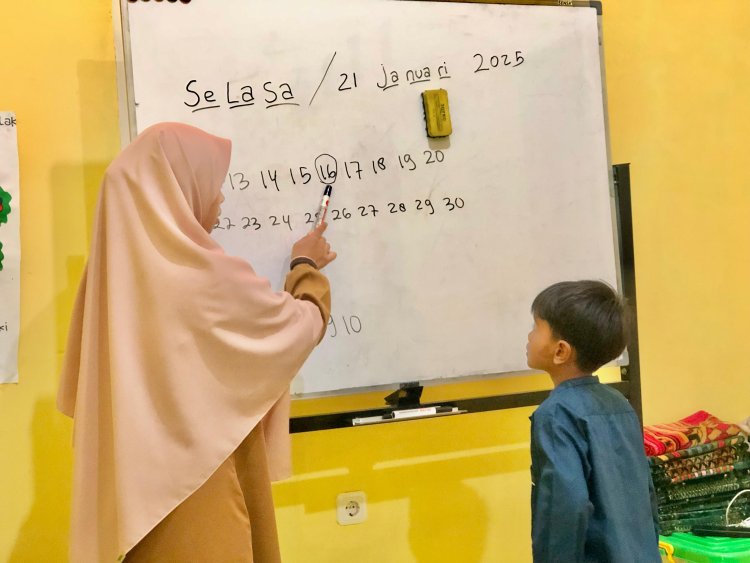 Selasa / 21 Januari 2025
13 14 15 16 17 18 19 20
22 23 24 25 26 27 28 29 30
10